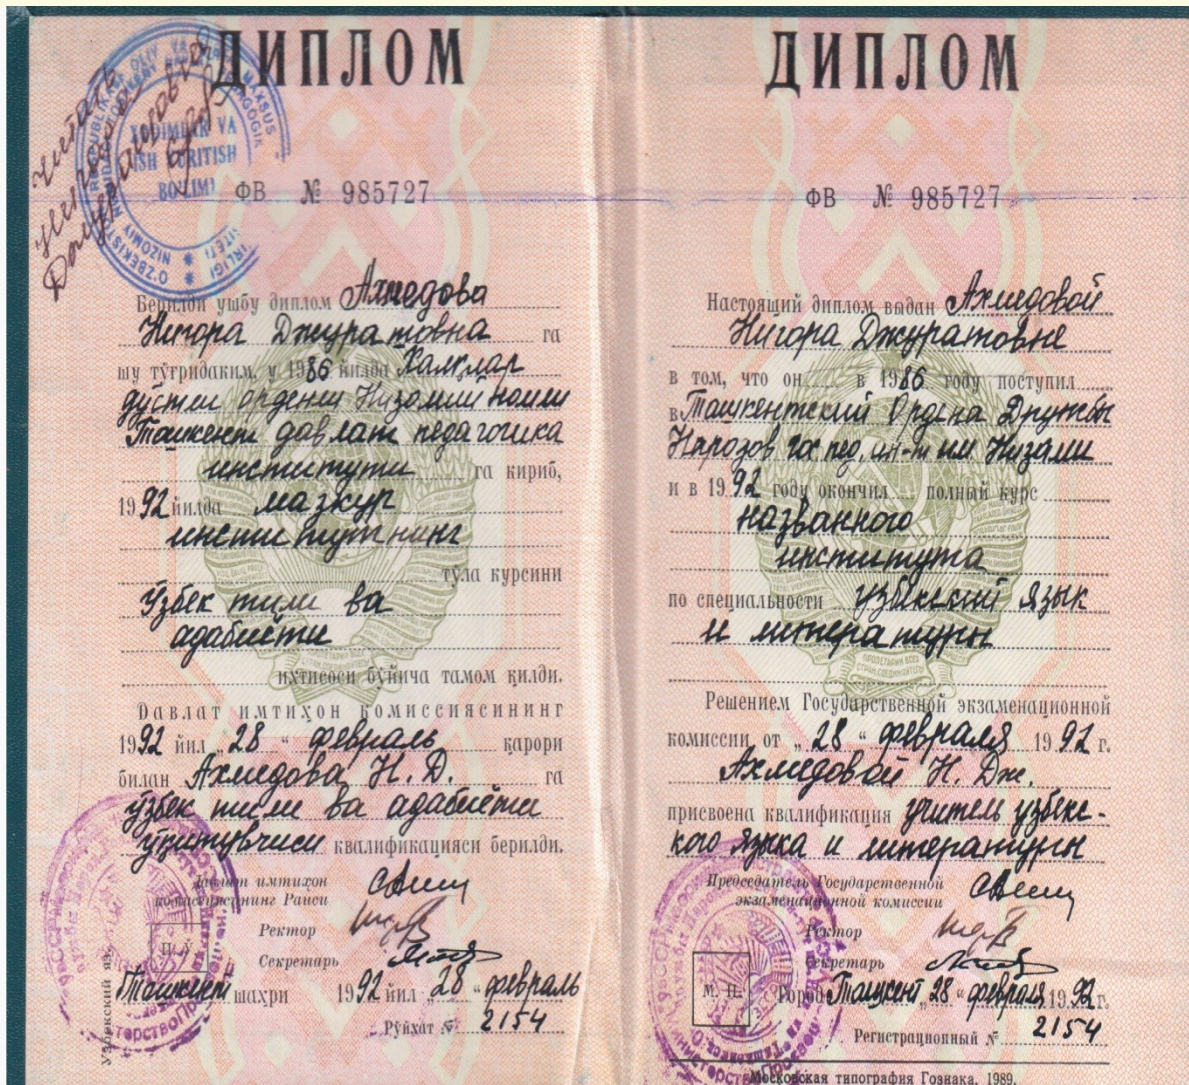 ДИПЛОМ
ФВ № 985727
Берилди ушбу диплом Ахмедова
Нигора Джуратовна га
шу тўғридаким, у 1986 йилда Халқлар
дўстлиги ордени Низомий номли
Тошкент давлат педагогика
институти га кириб,
1992 йилда мазкур
институтнинг
тўла курсини
ўзбек тили ва
адабиёти
ихтисоси бўйича тамом қилди.
Давлат имтиҳон комиссиясининг
1992 йил „28" февраль қарори
билан Ахмедова Н. Д. га
ўзбек тили ва адабиёти
ўқитувчиси квалификацияси берилди.
Давлат имтиҳон
комиссиясининг Раиси
Ректор
Секретарь
П. Ў
Тошкент шаҳри 1992 йил „28" февраль
Рўйхат № 2154
Узбекский яз.
читать
Нигора
Джуратовна
XODIMLAR VA
ISH YURITISH
BO'LIMI
ДИПЛОМ
ФВ № 985727
Настоящий диплом выдан Ахмедовой
Нигора Джуратовне
в том, что он в 1986 году поступил
в Ташкентский Ордена Дружбы
Народов гос пед. ин-т им Низами
и в 1992 году окончил полный курс
названного
института
по специальности узбекский язык
и литературы
ПРОЛЕТАРИИ ВСЕХ
СТРАН, СОЕДИНЯЙТЕСЬ!
Решением Государственной экзаменационной
комиссии от „28" февраля 1992 г.
Ахмедовой Н. Дж.
присвоена квалификация учитель узбекс-
кого языка и литературы
Председатель Государственной
экзаменационной комиссии
Ректор
Секретарь
М. П.
Город Ташкент „28" февраля 1992 г.
Регистрационный № 2154
Московская типография Гознака. 1989.